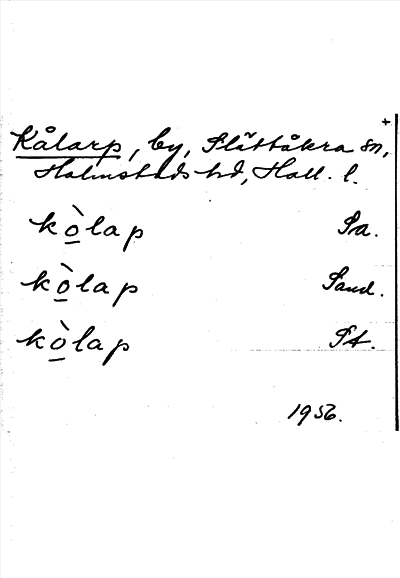 +
Kålarp, by, Slättåkra sn,
Halmstads hd, Hall. l.
kò̲lap Sa.
kò̲lap Sand.
kò̲lap St.
1956.